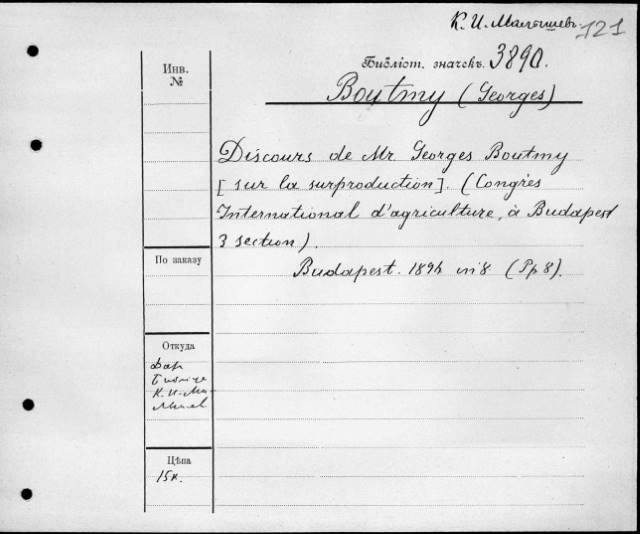 К. И. Малышевъ 121
Инв.
№
Библіот. значекъ. 3890.
Boutmy (Georges)
Discours de Mr Georges Boutmy
[sur la surproduction]. (Congrès
International d'agriculture, à Budapest
3 section).
По заказу
Budapest. 1896 in 8 (Pp 8).
Откуда
Дар
К. И. Ма-
Цѣна
15к.